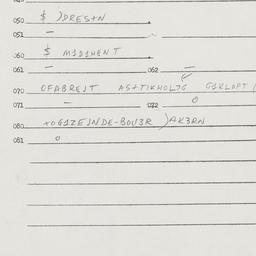 050 $ )DRES+N
051 —
060 $ M1D1HENT
061 — 062 —
070 OFABREJT AS+TIKHOL7G G1KLOPT (
071 — 072 O
080 +OG1ZEJNDE-BOU3R )AK3RN
081 O